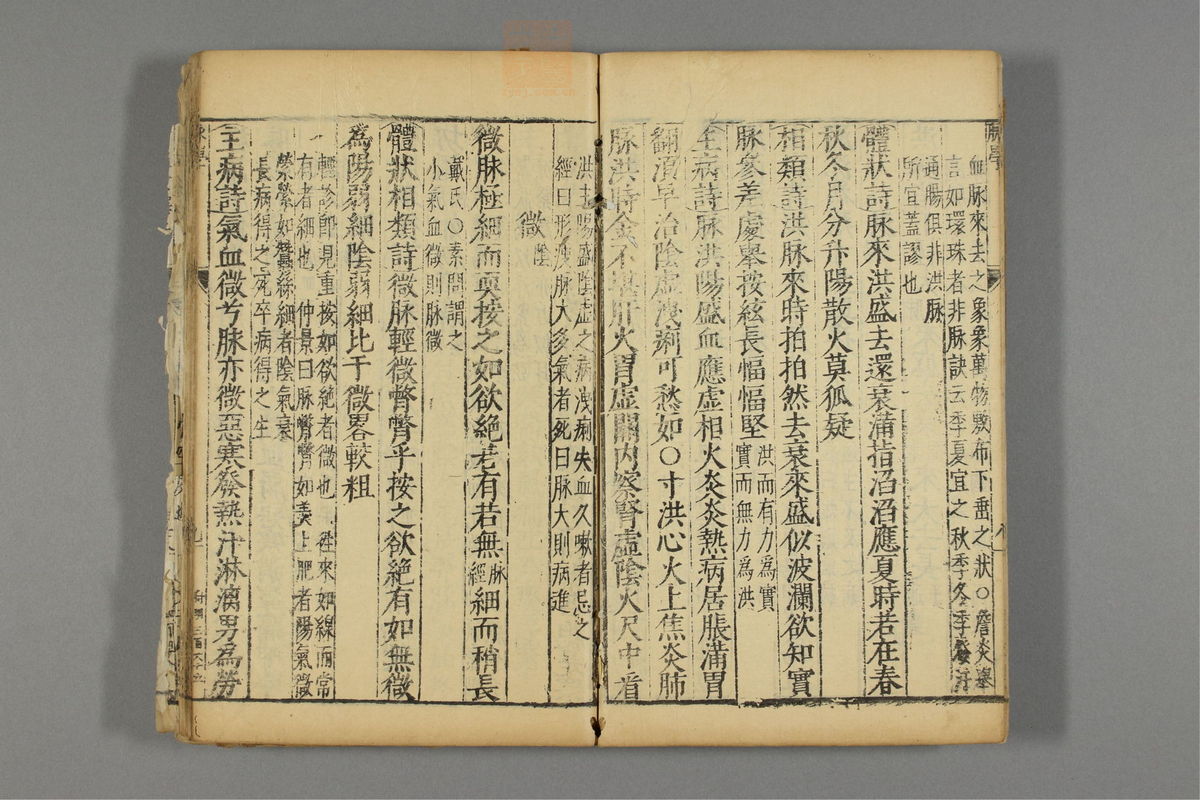 血脈來去之象象萬物敷布下垂之狀○詹炎舉
言如環珠者非脈訣云季夏宜之秋季冬季發汗
通腸俱非洪脈
所宜蓋謬也
體狀詩脈來洪盛去還衰滿指滔滔應夏時若在春
秋冬月分升陽散火莫狐疑
相類詩洪脈來時拍拍然去衰來盛似波瀾欲知實
脈參差處舉按絃長愊愊堅洪而有力為實
實而無力為洪
主病詩脈洪陽盛血應虛相火炎炎熱病居脹滿胃
翻須早治陰虛洩痢可愁如○寸洪心火上焦炎肺
脈洪時金不堪肝火胃虛關內察腎虛陰火尺中看
洪主陽盛陰虛之病洩痢失血久嗽者忌之
經曰形瘦脈大多氣者死曰脈大則病進
微陰
微脈極細而耎按之如欲絕若有若無脈
經細而稍長
戴氏○素問謂之
小氣血微則脈微
體狀相類詩微脈輕微瞥瞥乎按之欲絕有如無微
為陽弱細陰弱細比于微畧較粗
輕診即見重按如欲絕者微也往來如線而常
有者細也仲景曰脈瞥瞥如羹上肥者陽氣微
縈縈如蠶絲細者陰氣衰
長病得之死卒病得之生
主病詩氣血微兮脈亦微惡寒發熱汗淋漓男為勞